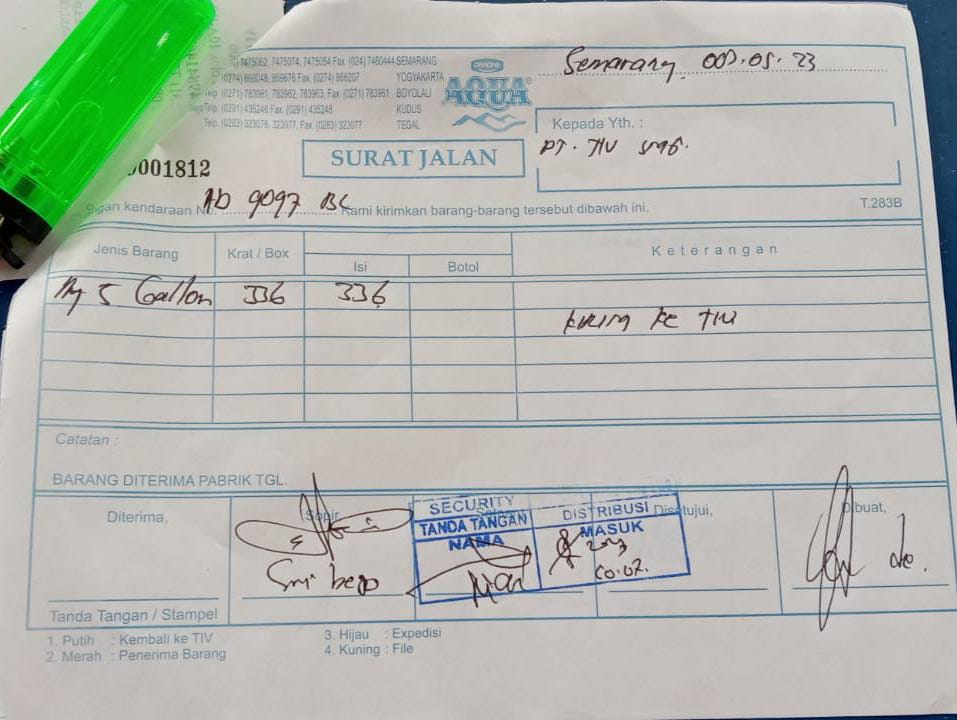 7475062, 7475074, 7475054 Fax. (024) 7460444 SEMARANG
(0274) 868048, 869676 Fax. (0274) 868207 YOGYAKARTA
Telp. (0271) 783981, 783962, 783963, Fax. (0271) 783961 BOYOLALI
Telp. (0291) 435248 Fax. (0291) 435248 KUDUS
Telp. (0283) 323076, 323077, Fax. (0283) 323077 TEGAL
DANONE
AQUA
Semarang,
Kepada Yth. :
PT. TIV smg.
SURAT JALAN
001812
kendaraan No. AD 9097 BC Kami kirimkan barang-barang tersebut dibawah ini.
T.283B
Jenis Barang Krat / Box Isi Botol Keterangan
5 Gallon 336 336
kirim ke TIV
Catatan :
BARANG DITERIMA PABRIK TGL.
Diterima, Sopir Disetujui, Dibuat,
SECURITY DISTRIBUSI
TANDA TANGAN MASUK
NAMA
Tanda Tangan / Stampel
1. Putih : Kembali ke TIV
2. Merah : Penerima Barang
3. Hijau : Expedisi
4. Kuning : File